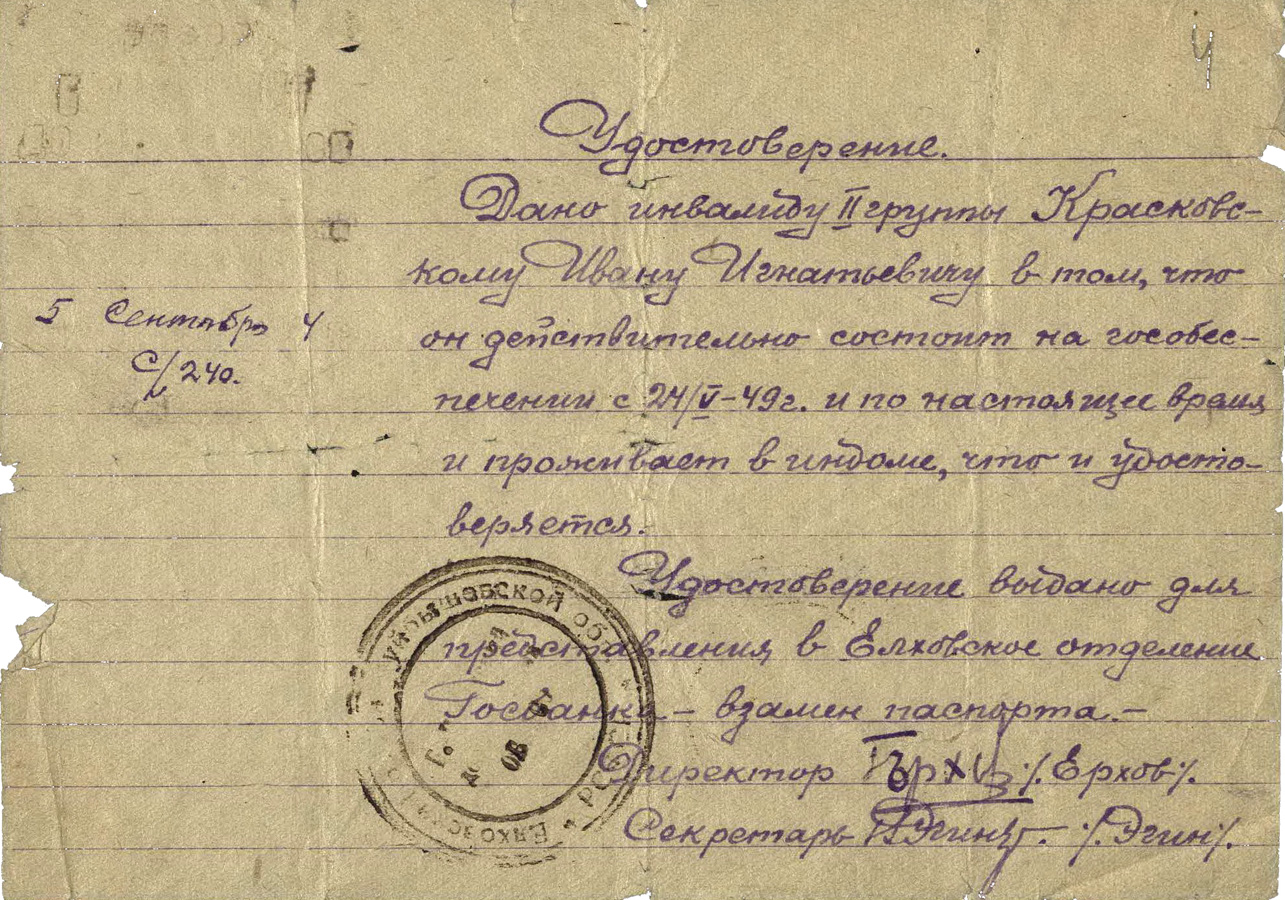 4
Удостоверение.
Дано инвалиду II группы Красковс-
кому Ивану Игнатьевичу в том, что
он действительно состоит на гособес-
печении с 24/V-49г. и по настоящее время
и проживает в индоме, что и удосто-
веряется.
5 Сентября 4
с/240.
Удостоверение выдано для
представления в Елховское отделение
Госбанка - взамен паспорта.-
Директор /.Ерхов/.
Секретарь /.Эгин/.
Куйбышевской обл.
РСФСР
Елховский